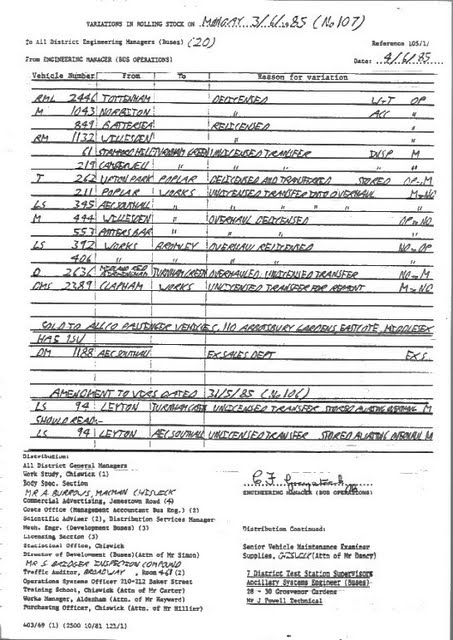 VARIATIONS IN ROLLING STOCK ON MONDAY 3/6/85 (No 107)
To All District Engineering Managers (Buses) (20)
Reference 105/1/
From ENGINEERING MANAGER (BUS OPERATIONS)
Date: 4/6/85
Vehicle Number From To Reason for variation
RML 2446 TOTTENHAM DELICENSED W+T OP
M 1043 NORBITON " ACC "
849 BATTERSEA RELICENSED "
RM 1132 WILLESDEN " "
61 STAMFORD HILL TURNHAM GREEN UNLICENSED TRANSFER DNSP M
219 CAMBERWELL " " " " "
T 262 UPTON PARK POPLAR DELICENSED AND TRANSFERRED STORED OP-M
211 POPLAR WORKS UNLICENSED TRANSFER INTO OVERHAUL M-NO
LS 395 AEC SOUTHALL " " " " " "
M 444 WILLESDEN " OVERHAUL DELICENSED OP-NO
553 POTTERS BAR " " " "
LS 392 WORKS BROMLEY OVERHAUL RELICENSED NO-OP
406 " " " " "
D 2636 TURNHAM GREEN OVERHAULED UNLICENSED TRANSFER NO-M
DMS 2389 CLAPHAM WORKS UNLICENSED TRANSFER FOR REPAINT M-NO
SOLD TO ALLCO PASSENGER VEHICLES, 110 ABBOTSBURY GARDENS, EASTCOTE, MIDDLESEX
HA5 1SU
DM 1188 AEC SOUTHALL EX SALES DEPT EX S
AMENDMENT TO VORS DATED 31/5/85 (No 106)
LS 94 LEYTON TURNHAM GREEN UNLICENSED TRANSFER STORED AWAITING OVERHAUL M
SHOULD READ:-
LS 94 LEYTON AEC SOUTHALL UNLICENSED TRANSFER STORED AWAITING OVERHAUL M
Distribution:
All District General Managers
Work Study, Chiswick (1)
Body Spec. Section
MR A. BURROWS, CHISWICK
Commercial Advertising, Jamestown Road (4)
Costs Office (Management Accountant Bus Eng.) (2)
Scientific Adviser (2), Distribution Services Manager
Mech. Engr. (Development Buses) (3)
Licensing Section (3)
Statistical Office, Chiswick
Director of Development (Buses)(Attn of Mr Simon)
MR S. BRIDGER INSPECTION COMPOUND
Traffic Auditor, BROADWAY, Room 467 (2)
Operations Systems Officer 210-212 Baker Street
Training School, Chiswick (Attn of Mr Carter)
Works Manager, Aldenham (Attn of Mr Hayward)
Purchasing Officer, Chiswick (Attn. of Mr Hillier)
403/69 (1) (2500 10/81 123/1)
ENGINEERING MANAGER (BUS OPERATIONS)
Distribution Continued:
Senior Vehicle Maintenance Examiner
Supplies, CHISWICK (Attn of Mr Dancy)
7 District Test Station Supervisors
Ancillary Systems Engineer (Buses)
28 - 30 Grosvenor Gardens
Mr J Powell Technical